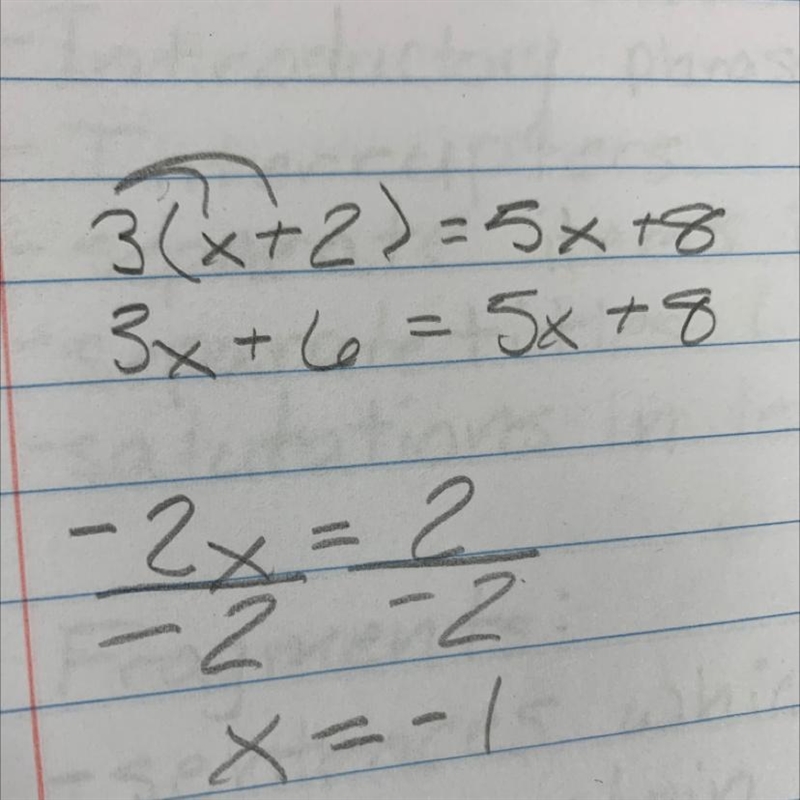 3(x+2)=5x+8
3x+6=5x+8
-2x=2
-2 -2
x=-1